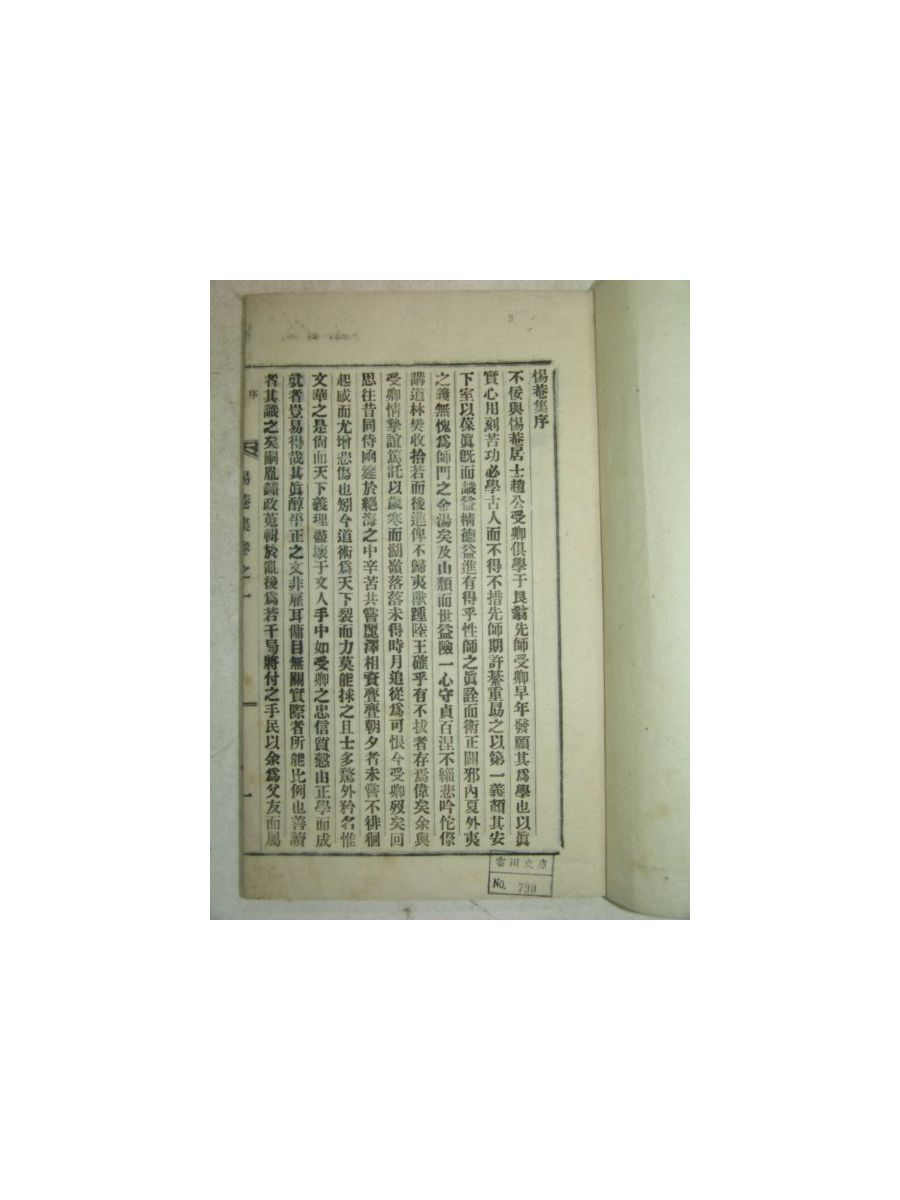 惕菴集序
不佞與惕菴居士趙公受卿俱學于艮翁先師受卿早年發願其爲學也以眞
實心用刻苦功必學古人而不得不措先師期許綦重勗之以第一義顏其安
下室以葆眞旣而識益精德益進有得乎性師之眞詮而衛正闢邪內夏外夷
之義無愧爲師門之金湯矣及山頹而世益險一心守貞百涅不緇悲吟佗傺
講道林樊收拾若而後進俾不歸夷獸踵陸王確乎有不拔者存焉偉矣余與
受卿情摯誼篤託以歲寒而湖嶺落落未得時月追從爲可恨今受卿歿矣回
思往昔同侍函筵於絶海之中辛苦共嘗麗澤相資亹亹朝夕者未嘗不徘徊
起感而尤增悲傷也矧今道術爲天下裂而力莫能捄之且士多騖外矜名惟
文華之是尙而天下義理盡壞于文人手中如受卿之忠信質慤由正學而成
就者豈易得哉其眞醇平正之文非雇耳傭目無關實際者所能比例也善讀
者其識之矣嗣胤鍾政蒐輯於亂後爲若干局將付之手民以余爲父友而屬
序
惕菴集卷之一
一
雲川文庫
No. 790